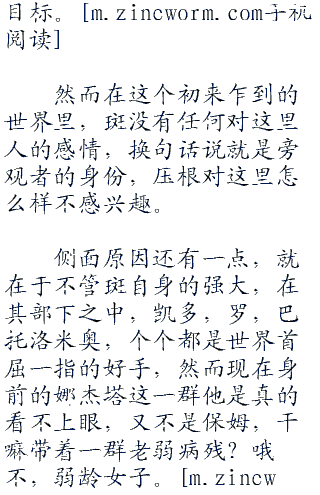 目标。[m.zincworm.com手机
阅读]
然而在这个初来乍到的
世界里，斑没有任何对这里
人的感情，换句话说就是旁
观者的身份，压根对这里怎
么样不感兴趣。
侧面原因还有一点，就
在于不管斑自身的强大，在
其部下之中，凯多，罗，巴
托洛米奥，个个都是世界首
屈一指的好手，然而现在身
前的娜杰塔这一群他是真的
看不上眼，又不是保姆，干
嘛带着一群老弱病残？哦
不，弱龄女子。[m.zincw